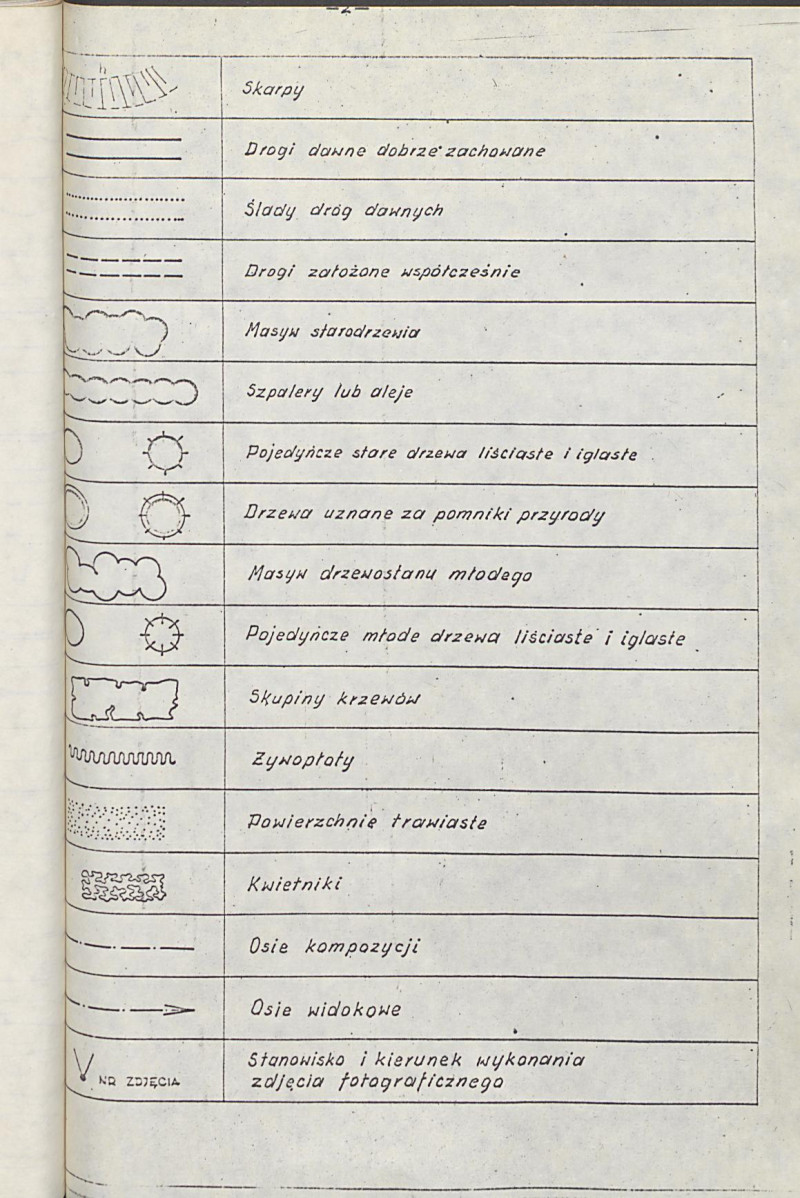 —2—
Skarpy
Drogi dawne dobrze zachowane
Ślady dróg dawnych
Drogi założone współcześnie
Masyw starodrzewia
Szpalery lub aleje
Pojedyńcze stare drzewa liściaste i iglaste
Drzewa uznane za pomniki przyrody
Masyw drzewostanu młodego
Pojedyńcze młode drzewa liściaste i iglaste
Skupiny krzewów
Żywopłoty
Powierzchnie trawiaste
Kwietniki
Osie kompozycji
Osie widokowe
NR ZDJĘCIA
Stanowisko i kierunek wykonania
zdjęcia fotograficznego